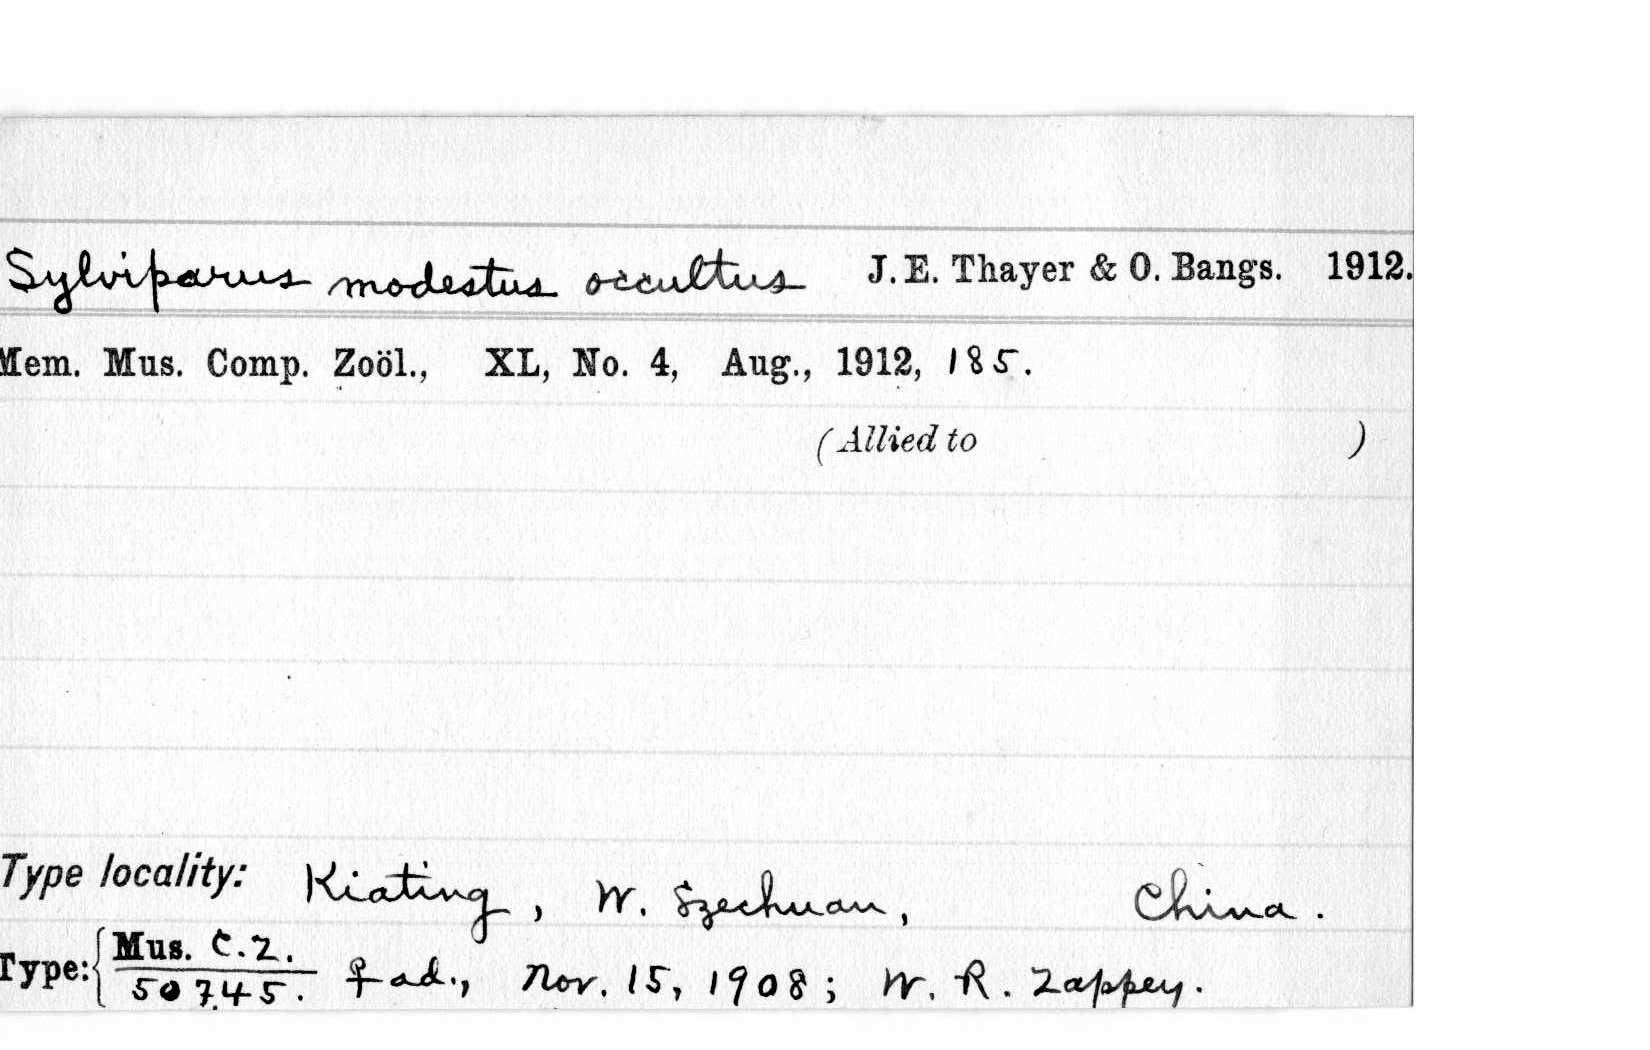 Sylviparus modestus occultus J. E. Thayer & O. Bangs. 1912.
Mem. Mus. Comp. Zoöl., XL, No. 4, Aug., 1912, 185.
(Allied to )
Type locality: Kiating, W. Szechuan, China.
Type: { Mus. C.Z.
50745. ♀ ad., Nov. 15, 1908; W. R. Zappey.